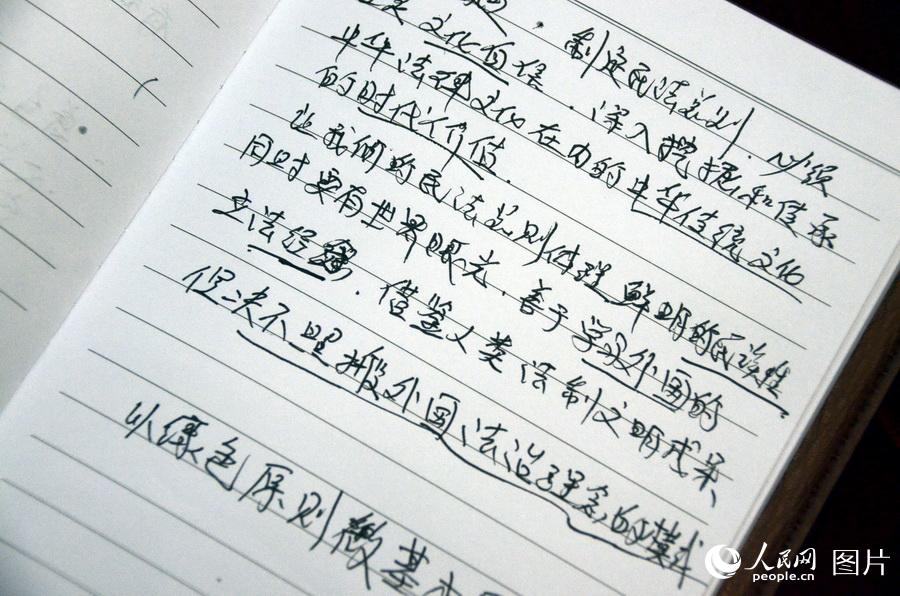 制定民法总则.
文化自信.深入挖掘和传承
中华法律文化在内的中华传统文化
的时代价值.
让我们的民法总则体现鲜明的民族性
同时要有世界眼光,善于学习外国的
立法经验.借鉴人类法制文明成果、
但决不照搬外国法治理念的模式
以绿色原则 基本
人民网 图片
people.cn